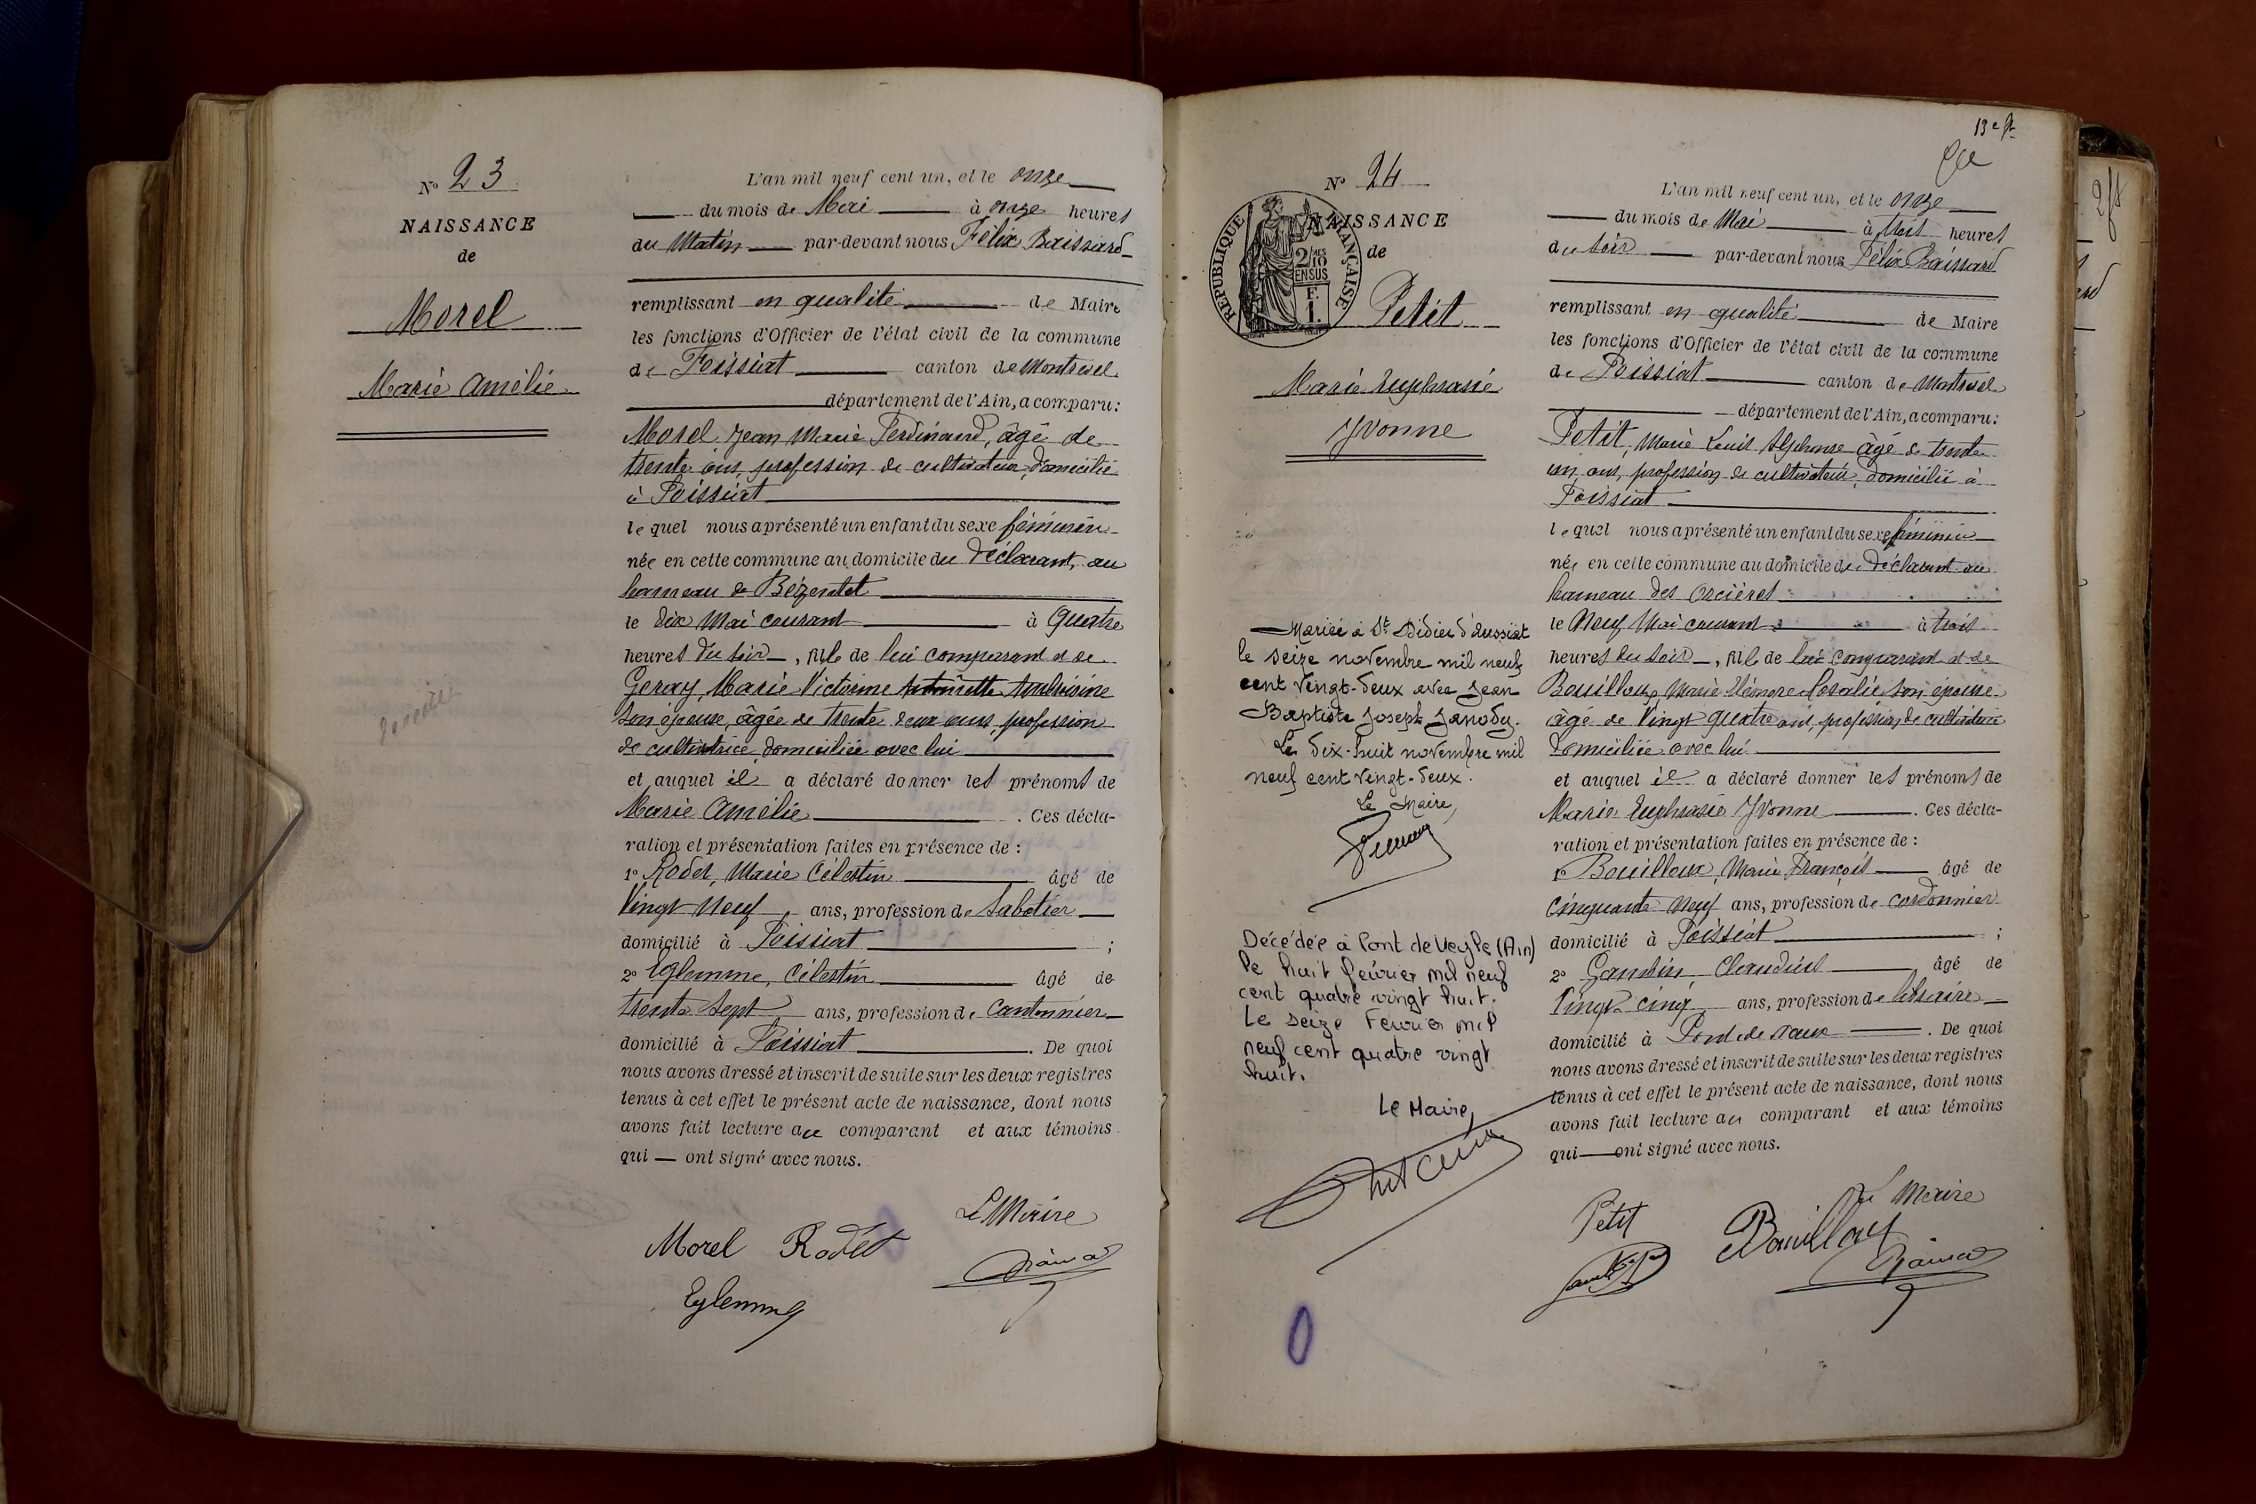 N° 23
NAISSANCE
de
Morel
Marie Amélie
L'an mil neuf cent un, et le onze
du mois de Mai à onze heures
du Matin par-devant nous Félix Baissard
remplissant en qualité de Maire
les fonctions d'Officier de l'état civil de la commune
de Foissiat canton de Montrevel
département de l'Ain, a comparu:
Morel Jean Marie Ferdinand, âgé de
trente ans, profession de cultivateur, domicilié
à Foissiat
lequel nous a présenté un enfant du sexe féminin
née en cette commune au domicile du déclarant, au
hameau de
le dix Mai courant à quatre
heures du soir, fille de lui comparant et de
Geray, Marie Victorine
son épouse, âgée de trente deux ans, profession
de cultivatrice, domiciliée avec lui
et auquel il a déclaré donner les prénoms de
Marie Amélie. Ces décla-
ration et présentation faites en présence de :
1° Rodet, Marie Célestin âgé de
Vingt Neuf ans, profession de Sabotier
domicilié à Foissiat ;
2° Eglemme, Célestin âgé de
trente sept ans, profession de Cantonnier
domicilié à Foissiat. De quoi
nous avons dressé et inscrit de suite sur les deux registres
tenus à cet effet le présent acte de naissance, dont nous
avons fait lecture au comparant et aux témoins
qui ont signé avec nous.
Le Maire
Morel Rodet
Eglemme
N° 24
NAISSANCE
de
RÉPUBLIQUE FRANÇAISE
2/10
EN SUS
F.
1.
Petit
Marie Euphrasie
Yvonne
Mariée à St Didier d'Aussiat
le seize novembre mil neuf
cent vingt-deux avec Jean
Baptiste Joseph Janody.
Le dix-huit novembre mil
neuf cent vingt-deux.
Le Maire,
Décédée à Pont de Veyle (Ain)
le huit février mil neuf
cent quatre vingt huit.
Le seize Février mil
neuf cent quatre vingt
huit.
Le Maire,
L'an mil neuf cent un, et le onze
du mois de Mai à trois heures
du soir par-devant nous Félix Baissard
remplissant en qualité de Maire
les fonctions d'Officier de l'état civil de la commune
de Foissiat canton de Montrevel
département de l'Ain, a comparu:
Petit, Marie Louis Alphonse âgé de trente
un ans, profession de cultivateur, domicilié à
Foissiat
lequel nous a présenté un enfant du sexe féminin
née en cette commune au domicile du déclarant au
hameau des Orcières
le Neuf Mai courant à trois
heures du soir, fille de lui comparant et de
Bouilloux, Marie Rosalie son épouse
âgé de Vingt quatre ans, profession de cultivatrice
domiciliée avec lui
et auquel il a déclaré donner les prénoms de
Marie Euphrasie Yvonne. Ces décla-
ration et présentation faites en présence de :
1° Bouilloux, Marie François âgé de
cinquante neuf ans, profession de cordonnier
domicilié à Foissiat ;
2° Gandin, Claudius âgé de
Vingt cinq ans, profession de libraire
domicilié à Pont de Vaux. De quoi
nous avons dressé et inscrit de suite sur les deux registres
tenus à cet effet le présent acte de naissance, dont nous
avons fait lecture au comparant et aux témoins
qui ont signé avec nous.
Le Maire
Petit Bouilloux